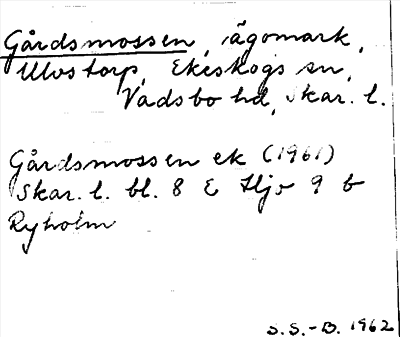 Gårdsmossen, ägomark,
Ulvstorp, Ekeskogs sn,
Vadsbo hd, Skar. l.
Gårdsmossen ek (1961)
Skar. l. bl. 8 E Hjo 9 b
Ryholm
S. S.-B. 1962